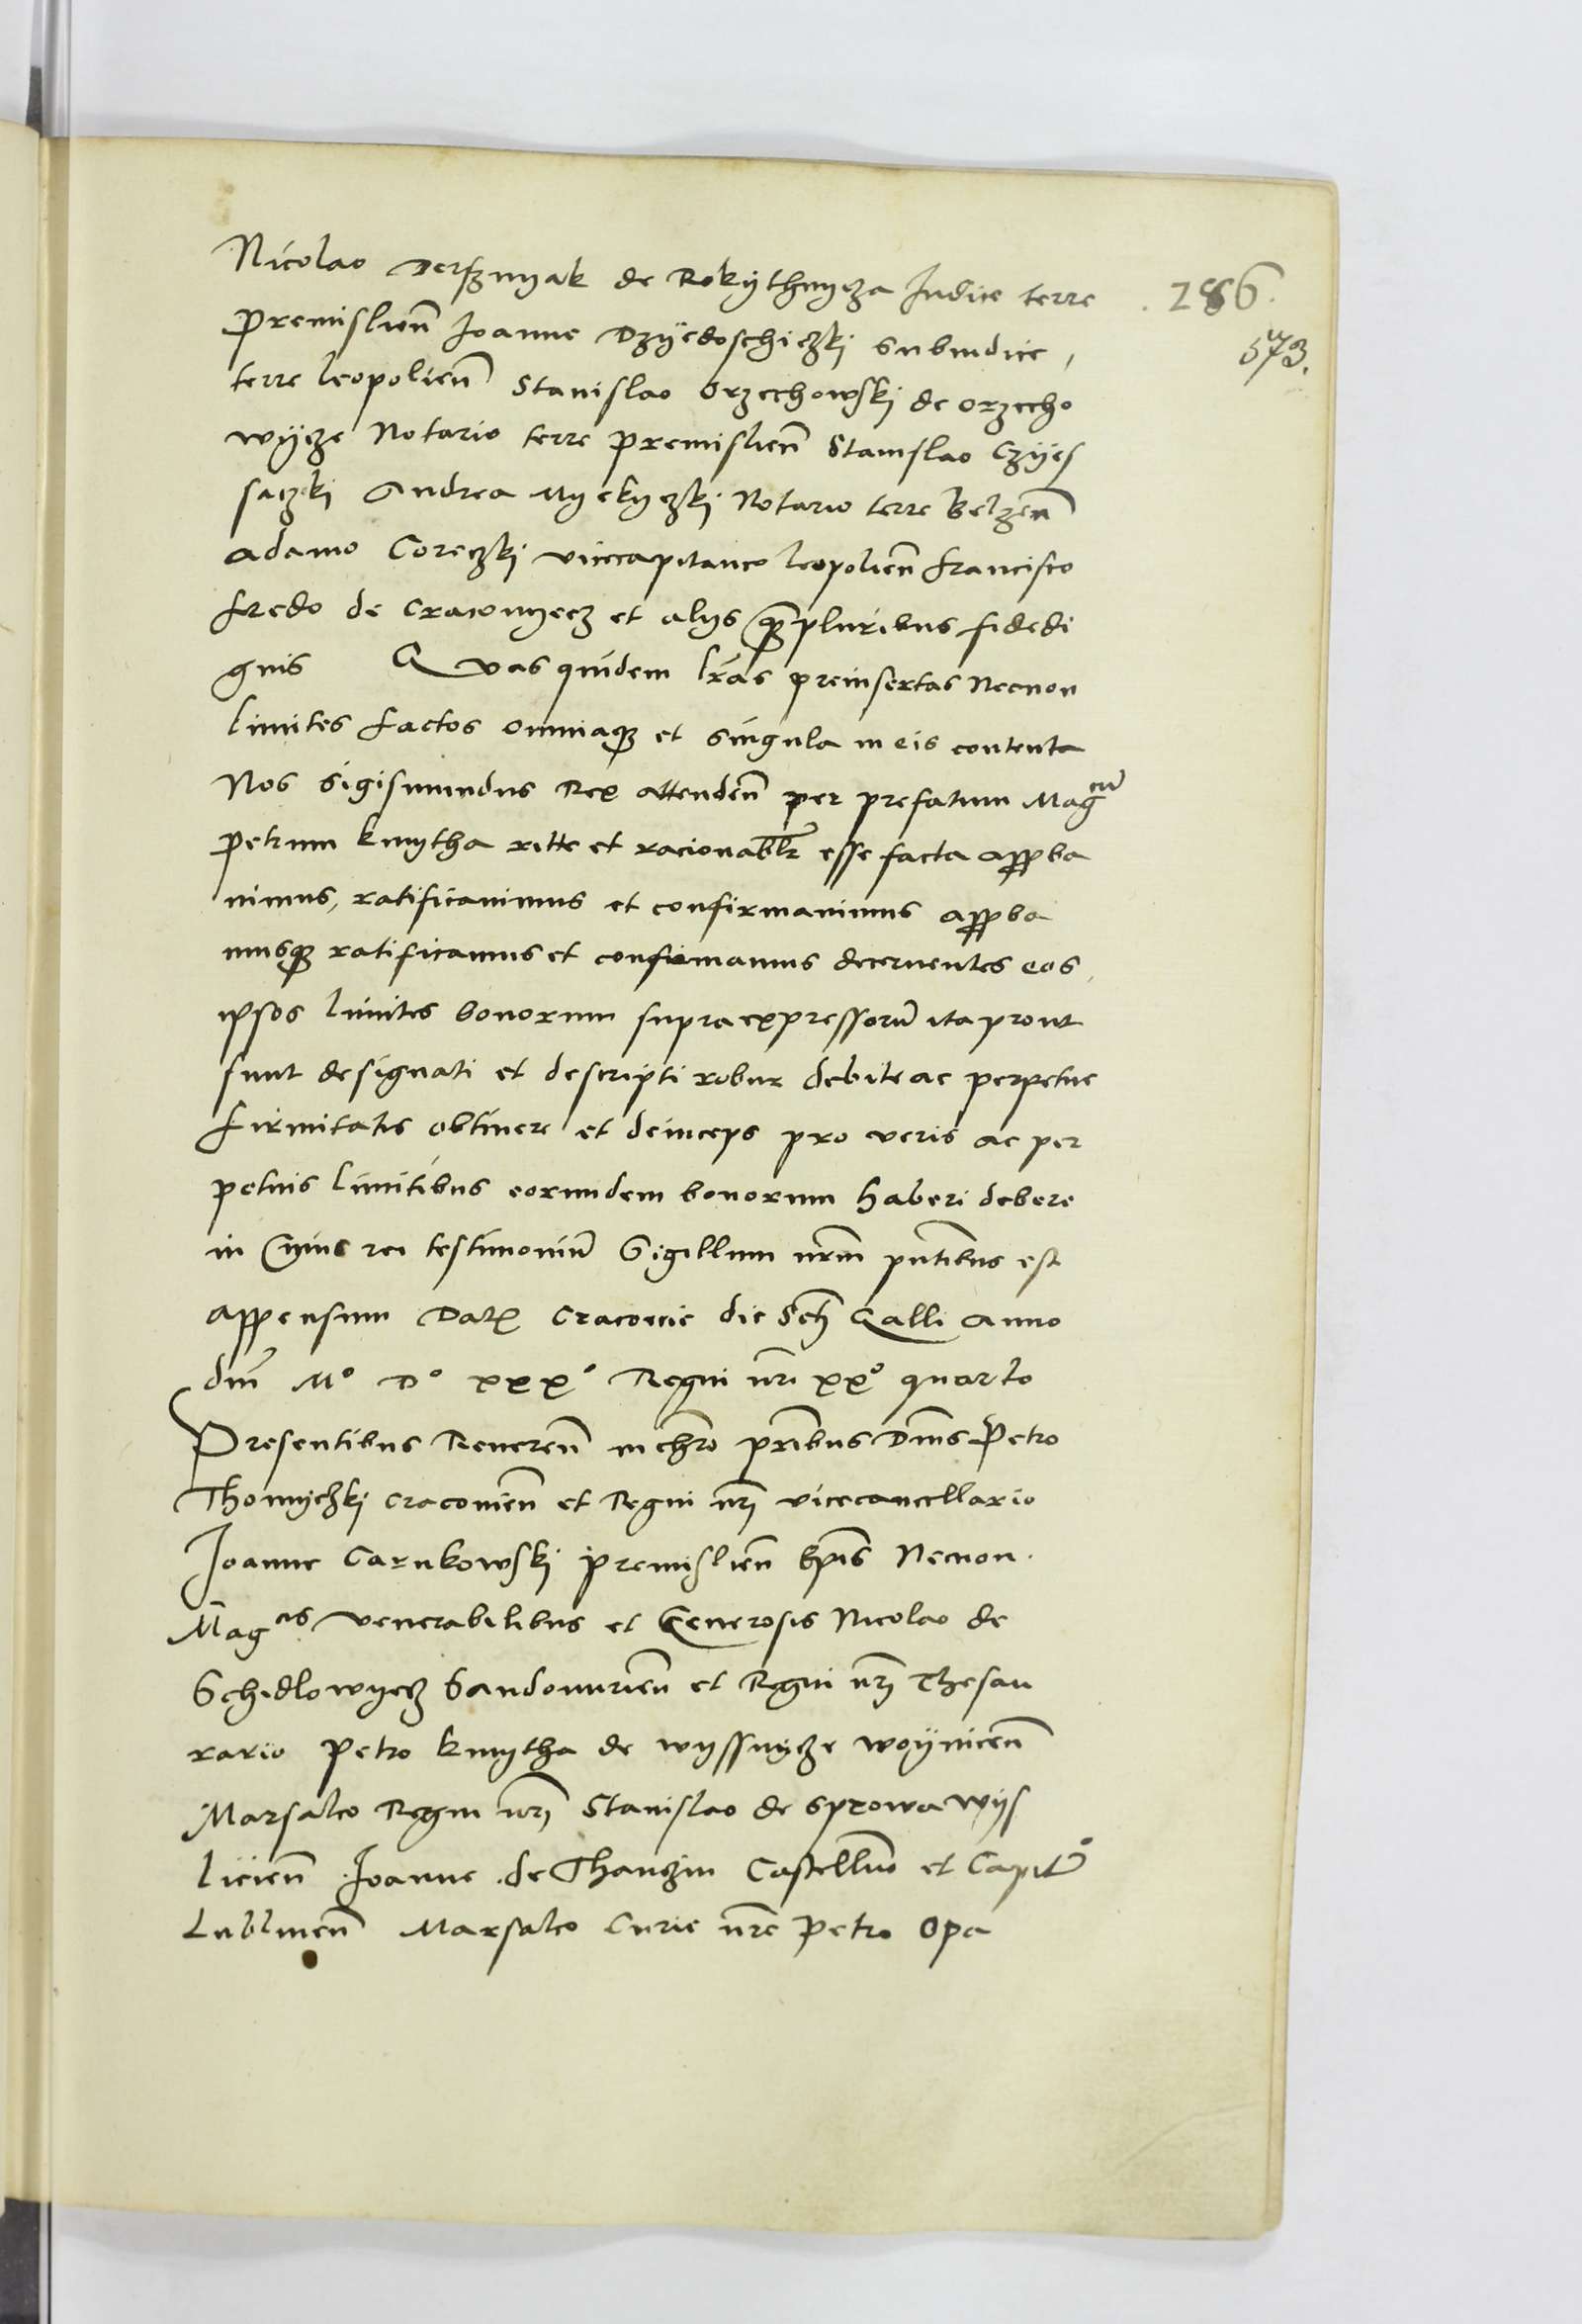 Nicolao Derssnyak de Rokythnycza Iudice terre
286.
573.
Premislien̄ Ioanne Dzÿedoschiczkj Subiudice,
terre leopolien̄ Stanislao Orzechowskj de orzecho
wÿcze Notario terre premislien̄ Stanislao Czÿes
saczkj Andrea Myekyczkj Notario terre Belzen̄
adamo Goreczkj vicecapitaneo leopolien̄ francisco
fredo de Cracowyecz et alÿs q̄mpluribus fidedi
gnis Quas quidem lr̄as preinsertas Necnon
limites factos omniaq3 et singula in eis contenta
Nos Sigismundus Rex attenden̄ per prefatum Magcū
petrum kmytha ritte et racionablr̄ esse facta appba
uimus, ratificauimus et confirmauimus appba
musq3 ratificamus et confirmamus decernentes eos
ipsos limites bonorum supraexpressorū ita prout
sunt designati et descripti robur debite ac perpetue
firmitatis obtinere et deinceps pro veris ac per
petuis limitibus eorundem bonorum haberi debere
in Cuius rei testimoniū Sigillum nr̄m pn̄tibus est
appensum Datʒ Cracouie die Scti Galli Anno
dnī Mo Do xxxo Regni nri xxo quarto
Presentibus Reueren̄ in chr̄o pr̄ibus Dn̄is Petro
Thomyczkj Cracouien̄ et Regni nrī vicecancellario
Ioanne Carnkowskj premislien̄ Ep̄is Necnon
Magcis venerabilibus et Generosis Nicolao de
Schedlowyecz Sandomirien̄ et Regni nrī Thesau
rario Petro kmytha de wyssnÿcze woÿnicen̄
Marsalco Regni nrī Stanislao de Sprowa wÿs
licien̄ Ioanne de Thanczin Castellan̄o et Capitō
Lublinen̄ Marsalco Curie nr̄e Petro Opa